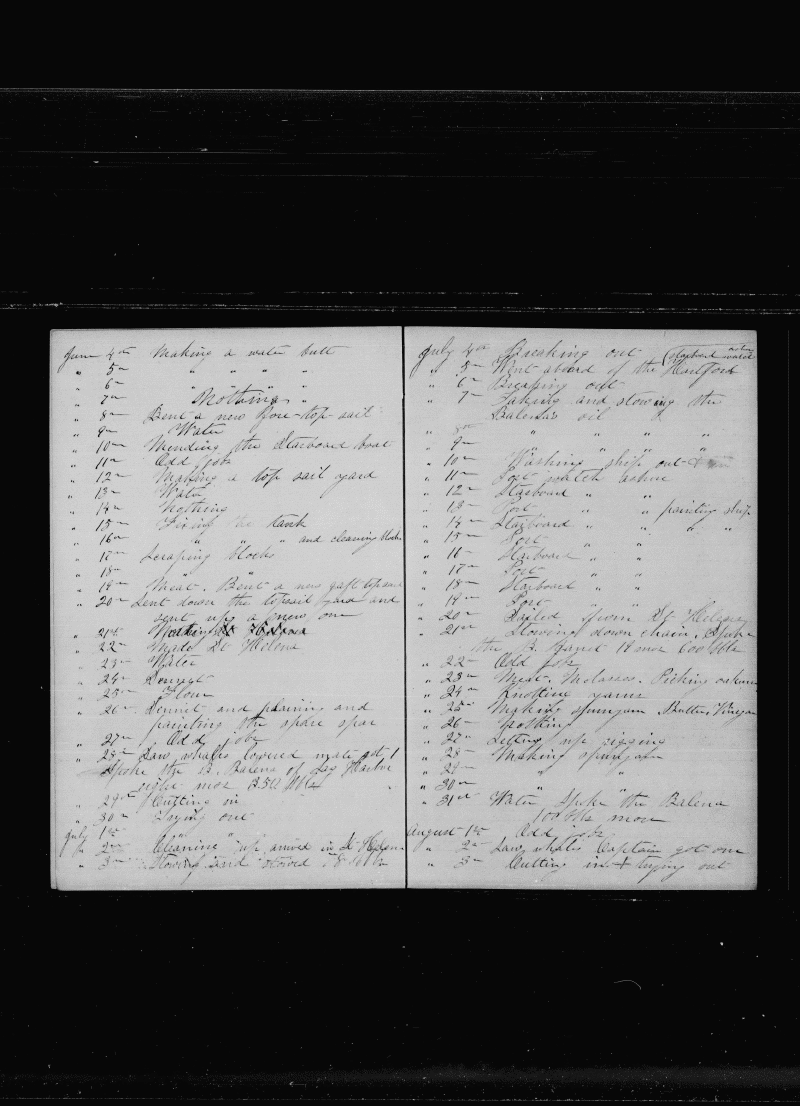 June 4th Making a water butt
" 5th " " " "
" 6th " " " "
" 7th Nothing "
" 8th Bent a new fore-top-sail
" 9th Water
" 10th Mending the Starboard boat
" 11th Odd jobs
" 12th Making a top sail yard
" 13th Water
" 14th Nothing
" 15th the tank
" 16th " " " and cleaning blocks
" 17th Scraping blocks
" 18th " "
" 19th Meat. Bent a new gaft topsail
" 20th Sent down the topsail yard and
sent up a new one
" 21st
" 22nd St Helena
" 23rd Water
" 24th
" 25th Flour
" 26th and plaining and
painting the spare spar
" 27th Odd jobs
" 28th Saw whales lowered mate got 1
Spoke the B. Balena of Sag Harbor
mos
" 29th Cutting in
" 30th Trying out
July 1st " "
" 2nd Cleaning up arrived in St Helena
" 3rd Stowing and stowed
July 4th Breaking out (Starboard watch ashore
" 5th Went aboard of the Hartford
" 6th Breaking out
" 7th Taking and stowing the
Balena's oil
" 8th " " " "
" 9th " " " "
" 10th Washing ship out
" 11th Port watch ashore
" 12th Starboard " "
" 13th Port " " painting ship
" 14th Starboard " " " "
" 15th Port " "
" 16th Starboard " "
" 17th Port " "
" 18th Starboard " "
" 19th Port " "
" 20th Sailed from St. Helena
" 21st Stowing down chain. Spoke
the B. mos 600 bbls
" 22nd Odd jobs
" 23rd Meat. Molasses. Picking oakum
" 24th Knotting yarns
" 25th Making spunyarn Butter, Vinegar
" 26th Nothing
" 27th Setting up rigging
" 28th Making spunyarn
" 29th " "
" 30th " "
" 31st Water Spoke the Balena
100 bbls more
August 1st Odd jobs
" 2nd Saw whales Captain got one
" 3rd Cutting in & trying out